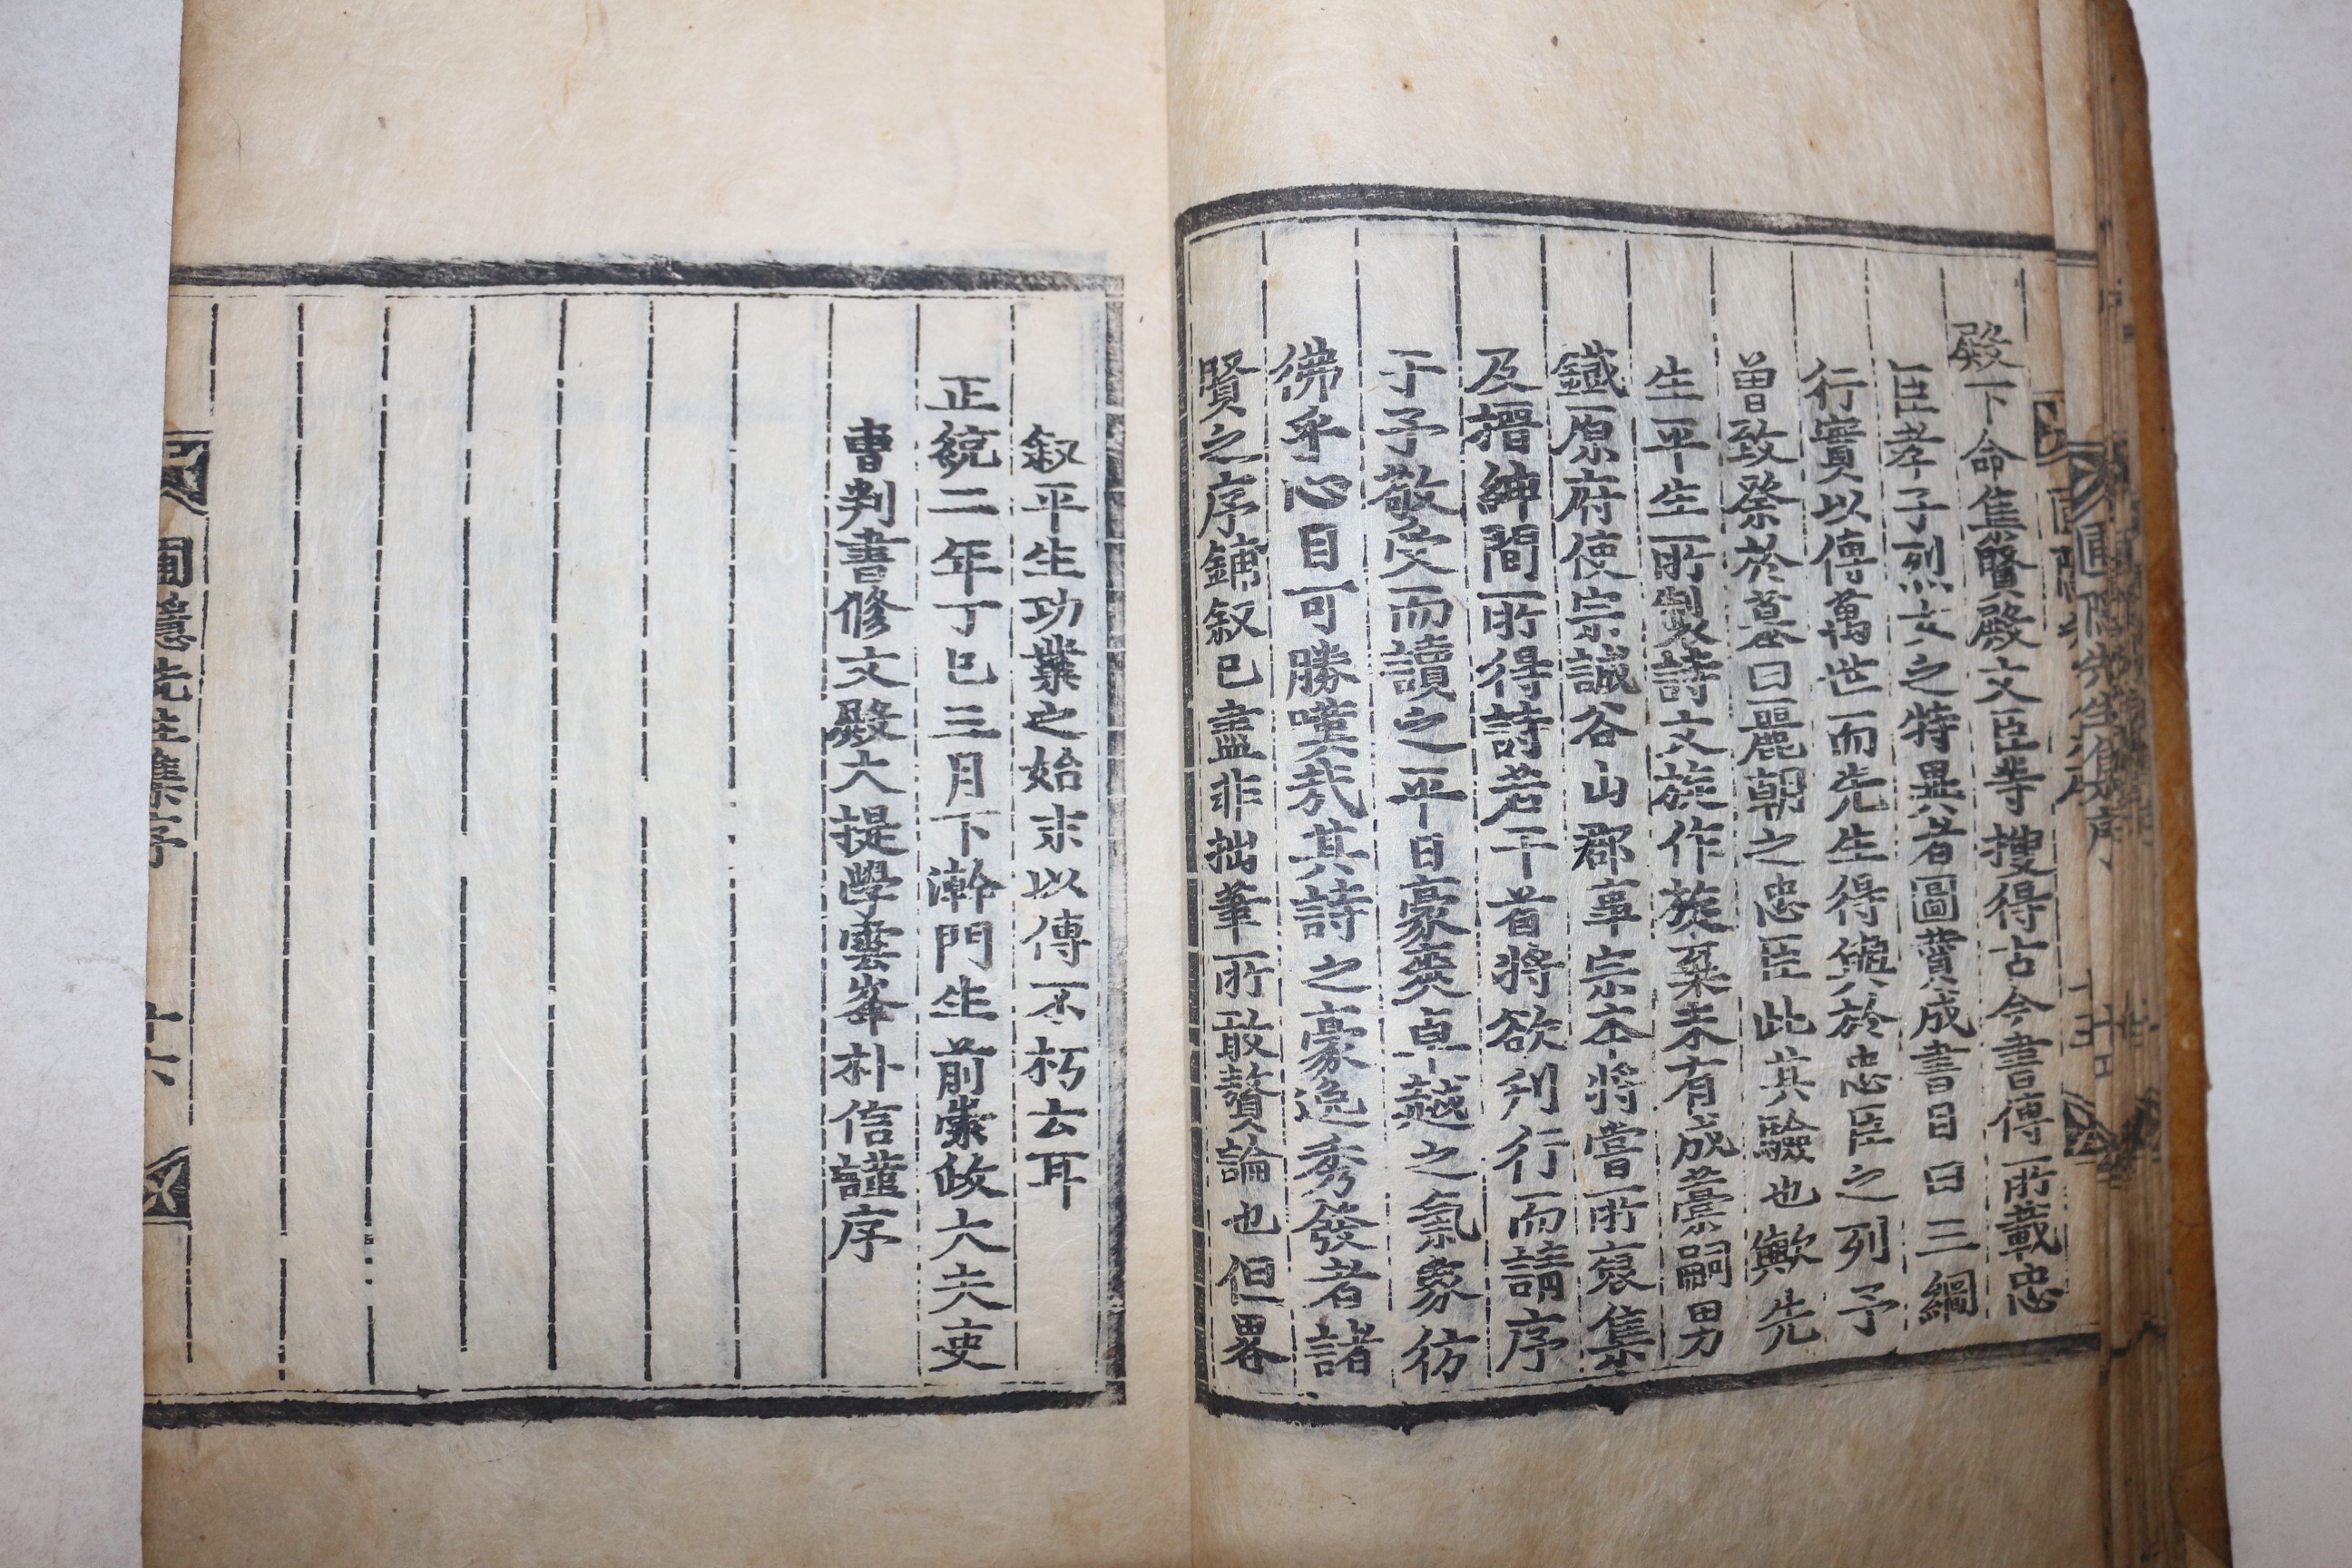 殿下命集賢殿文臣等搜得古今書傳所載忠
臣孝子烈女之特異者圖賛成書目曰三綱
行實以傳萬世而先生得與於忠臣之列予
曽致祭於墓曰麗朝之忠臣此其驗也歟先
生平生所製詩文旋作旋棄未有成藁嗣男
鐵原府使宗誠谷山郡事宗本將嘗所裒集
及搢紳間所得詩若干首將欲刋行而請序
于予敬受而讀之平日豪爽卓越之氣象彷
佛乎心目可勝嘆㢤其詩之豪逸秀發者諸
賢之序鋪叙已盡非拙筆所敢贅論也但畧
叙平生功業之始末以傳不朽云耳
正統二年丁巳三月下澣門生前崇政大夫吏
曹判書修文殿大提學雲峯朴信謹序
圃隱先生集序
十六